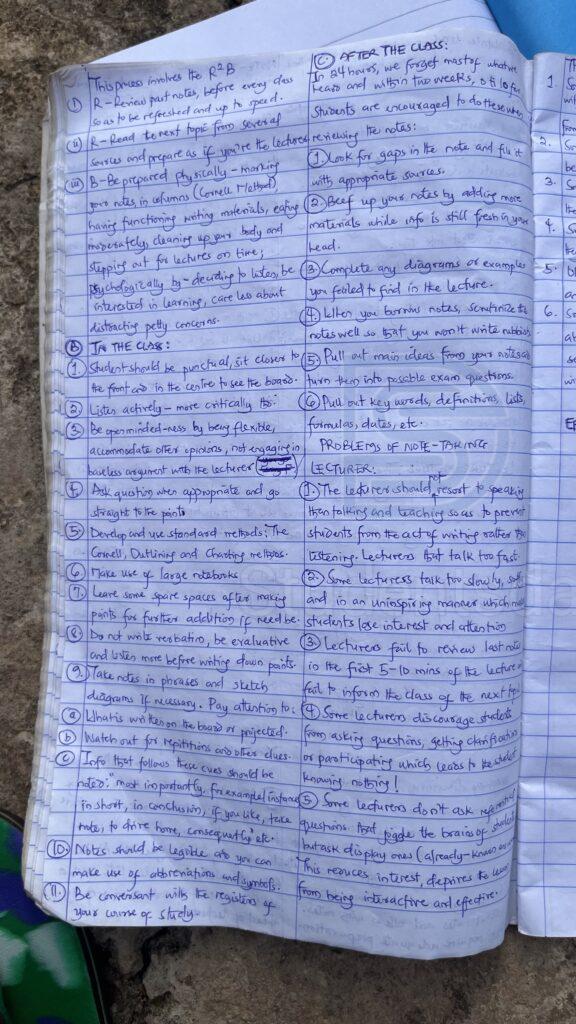 This process involves the R²B
(i) R - Review past notes, before every class
so as to be refreshed and up to speed.
(ii) R - Read the next topic from several
sources and prepare as if you're the lecturer
(iii) B - Be prepared physically - marking
your notes in columns (Cornell Method)
having functioning writing materials, eating
moderately, cleaning up your body and
stepping out for lectures on time;
psychologically by - deciding to listen, be
interested in learning, care less about
distracting petty concerns.
(B) IN THE CLASS:
(1) Student should be punctual, sit closer to
the front and in the centre to see the board.
(2) Listen actively - more critically
(3) Be openminded-ness by being flexible,
accommodate other opinions, not engaging in
baseless argument with the lecturer
(4) Ask question when appropriate and go
straight to the point
(5) Develop and use standard methods; The
Cornell, Outlining and Charting methods.
(6) Make use of large notebooks
(7) Leave some spare spaces after making
points for further addition if need be.
(8) Do not write verbatim, be evaluative
and listen more before writing down points.
(9) Take notes in phrases and sketch
diagrams if necessary. Pay attention to:
(a) What is written on the board or projected.
(b) Watch out for repititions and other clues.
(c) Info that follows these cues should be
noted: "most importantly, for example/instance
in short, in conclusion, if you like, take
note, to drive home, consequently" etc.
(10) Notes should be legible and you can
make use of abbreviations and symbols.
(11) Be conversant with the registers of
your course of study.
(C) AFTER THE CLASS:
In 24 hours, we forget most of what we
heard and within two weeks,
Students are encouraged to do these when
reviewing the notes:
(1) Look for gaps in the note and fill it
with appropriate sources.
(2) Beef up your notes by adding more
materials while info is still fresh in your
head.
(3) Complete any diagrams or examples
you failed to find in the lecture.
(4) When you borrow notes, scrutinize the
notes well so that you won't write rubbish
(5) Pull out main ideas from your notes and
turn them into possible exam questions.
(6) Pull out key words, definitions, lists,
formulas, dates, etc.
PROBLEMS OF NOTE-TAKING
LECTURER:
1. The lecturer should not resort to speaking
than talking and teaching so as to prevent
students from the act of writing rather than
listening. Lecturers that talk too fast.
(2) Some lecturers talk too slowly,
and in an uninspiring manner which
students lose interest and attention
(3) Lecturers fail to review last note
in the first 5-10 mins of the lecture or
fail to inform the class of the next topic
(4) Some lecturers discourage students
from asking questions, getting clarification
or participating which leads to the student
knowing nothing!
(5) Some lecturers don't ask referential
questions that joggle the brains of students
but ask display ones (already-known
This reduces interest, deprives the
from being interactive and effective.
1.
2.
3.
4.
5.
6.